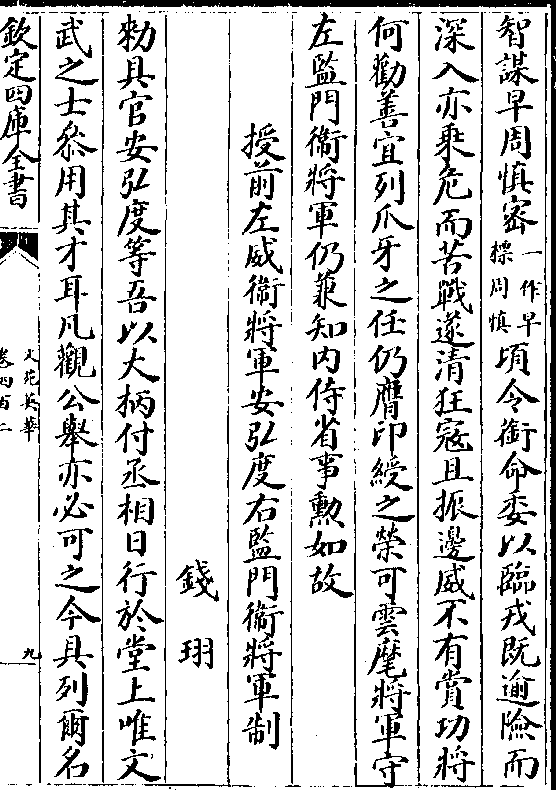 智謀早周慎密一作早操周慎頃令銜命委以臨戎既逾險而
深入亦乗危而苦戰遂清狂寇且振邊威不有賞功將
何勸善宜列爪牙之任仍膺印綬之榮可雲麾將軍守
左監門衛將軍仍兼知内侍省事勲如故
授前左威衞將軍安弘度右監門衞將軍制
錢珝
勅具官安弘度等吾以大柄付丞相日行於堂上唯文
武之士叅用其才耳凡觀公舉亦必可之今具列爾名
欽定四庫全書
文苑英華
卷四百二
九